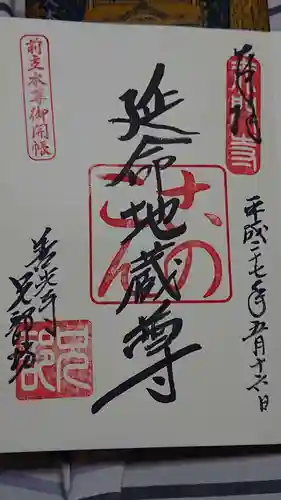 奉拝
延命地蔵尊
平成二十七年五月十六日
前立本尊御開帳
善光寺
兄部坊
兄部